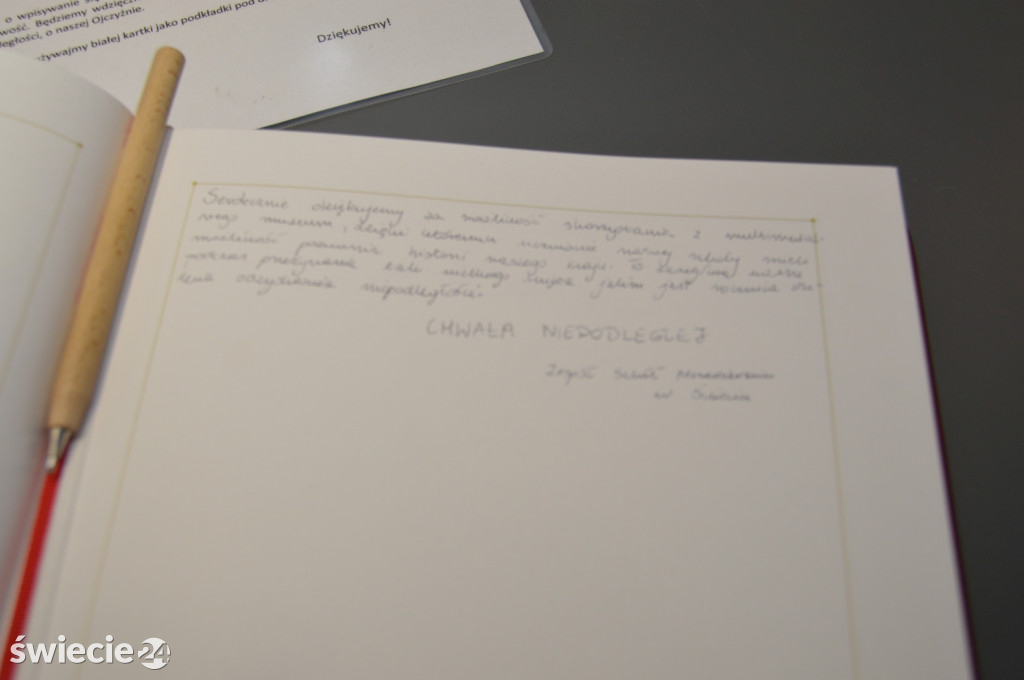 o wpisywanie
wość. Będziemy
ległości, o naszej Ojczyźnie.
żywajmy białej kartki jako podkładki pod
Dziękujemy!
Serdecznie dziękujemy za możliwość skorzystania z multimedial-
nego muzeum, dzięki któremu uczniowie naszej szkoły mieli
możliwość poznania historii naszego kraju. To szczególnie ważne
podczas przeżywania tak wielkiego święta jakim jest rocznica stu-
lecia odzyskania niepodległości.
CHWAŁA NIEPODLEGŁEJ
Zespół Szkół
w Świeciu
świecie24